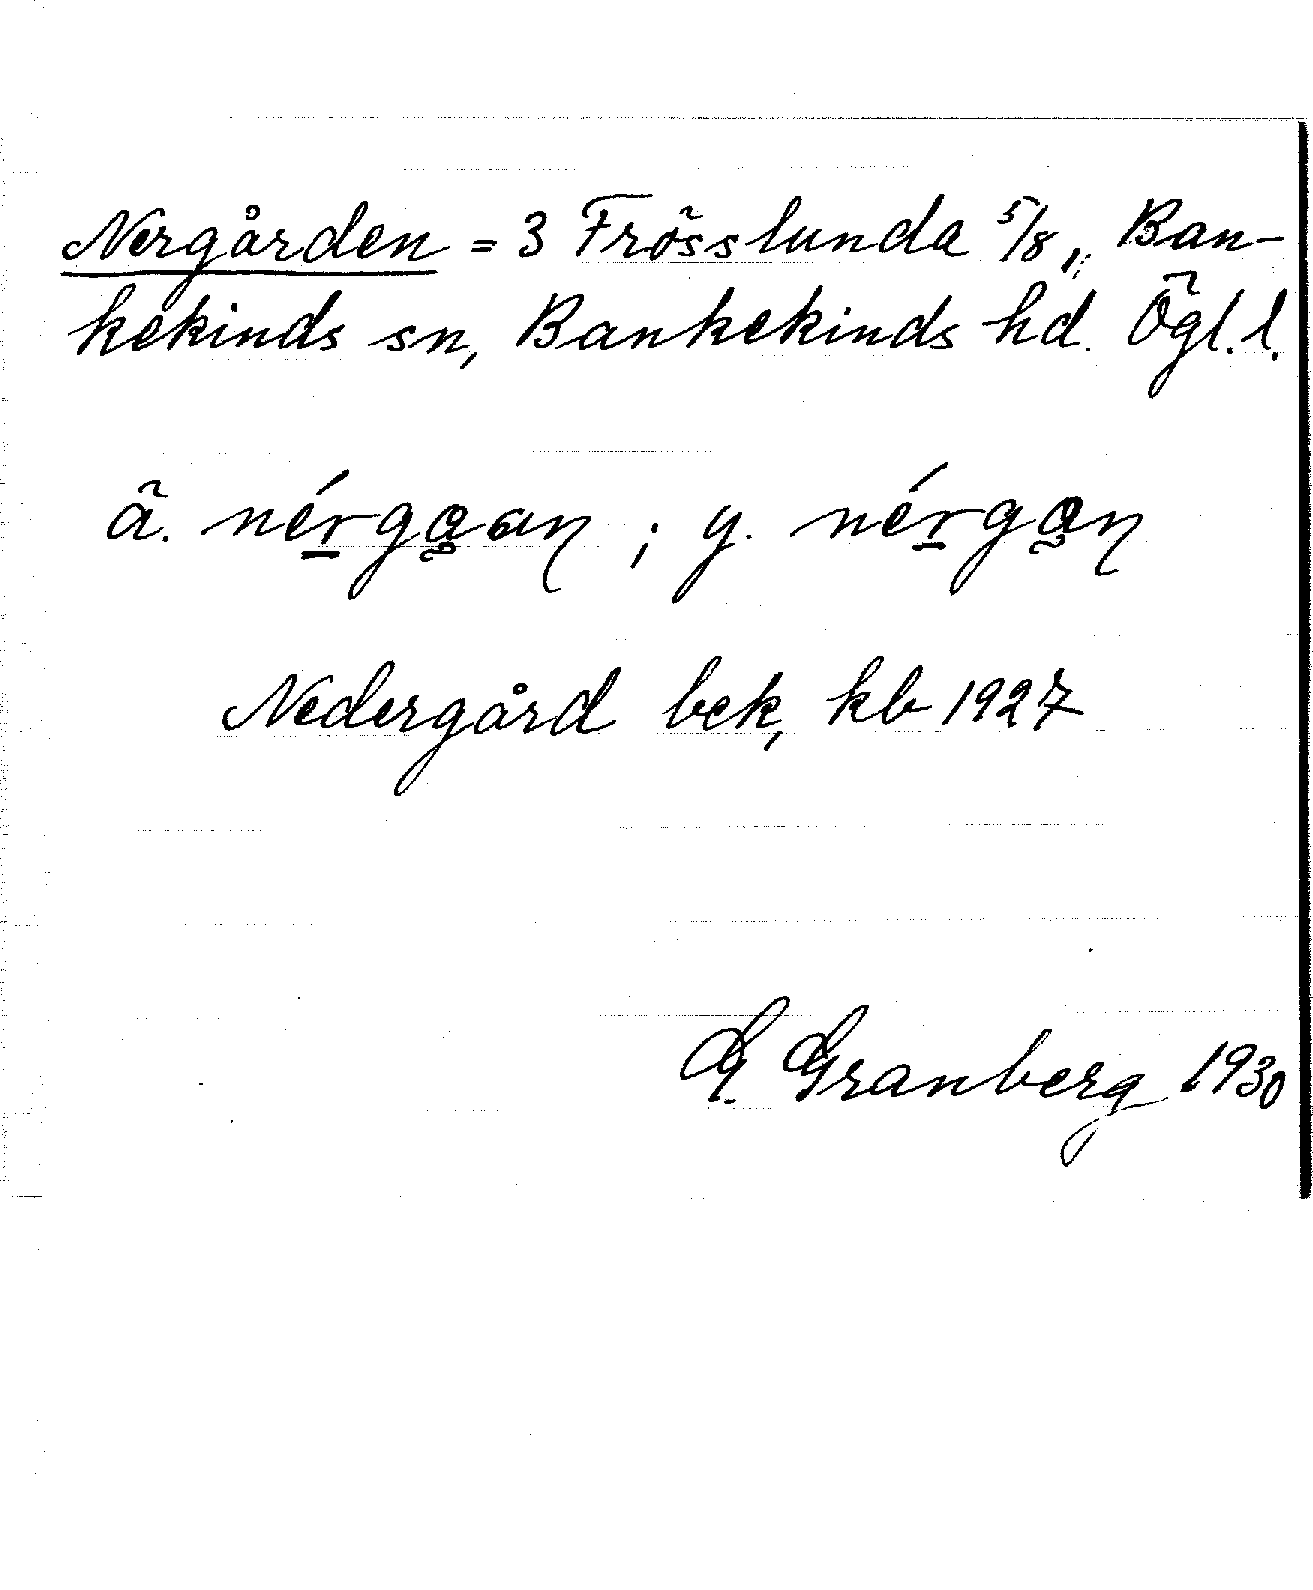 Nergården = 3 Frösslunda 5/8, Ban-
kekinds sn, Bankekinds hd. Ögl. l.
ä. nérgåan ; y. nérgån
Nedergård bek, kb 1927
G. Granberg 1930